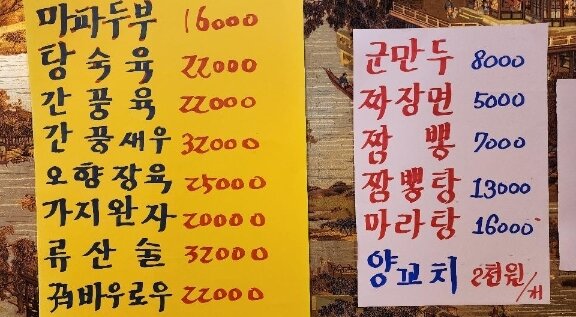 마파두부 16000
탕수육 22000
간풍육 22000
간풍새우 32000
오향장육 25000
가지완자 20000
류산슬 32000
바우로우 22000
군만두 8000
짜장면 5000
짬뽕 7000
짬뽕탕 13000
마라탕 16000
양꼬치 2천원/개